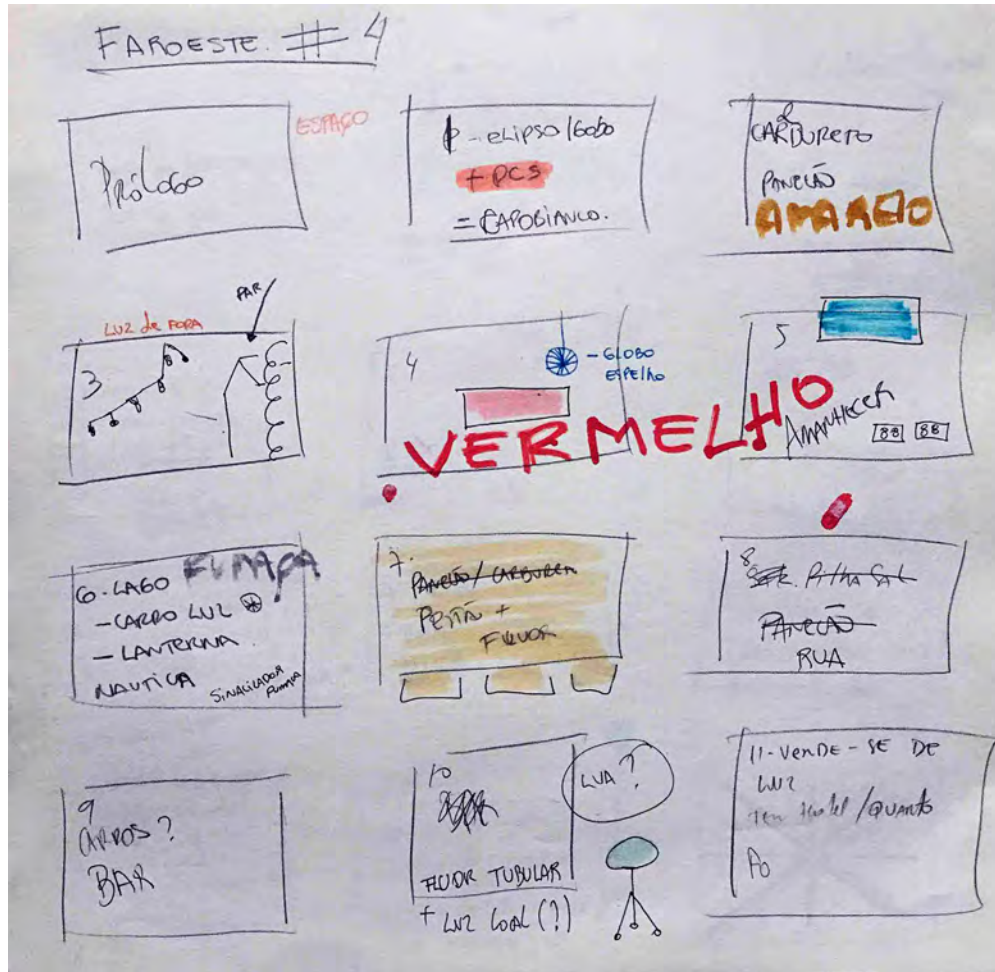 FAROESTE. # 4
Prólogo
ESPAÇO
- elipso/Gobo
+ PC5
= CAPOBIANCO.
2
CARBURETO
PANELÃO
AMARELO
LUZ de FORA
PAR
3
4
- GLOBO
ESPElho
VERMELHO
5
AMANHECER
88 88
6-LAGO
FUMAÇA
-CARRO LUZ
-LANTERNA
NAUTICA
SINALIZADOR
Fumaça
7.
PANELÃO/CARBURETO
+
FLUOR
8
PANELÃO
RUA
9
CARROS?
BAR
10
LUA?
FLUOR TUBULAR
+ LUZ LOCAL (?)
11-VENDE-SE DE
LUZ
/QUARTO